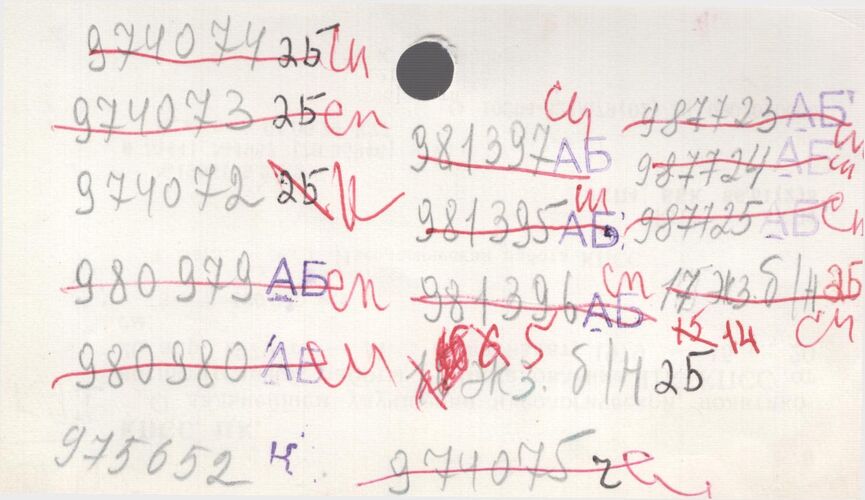 974074 25 сп
974073 25 сп
974072 25 К
980979 АБ сп
980980 АБ сп
975652 К
981397 АБ сп
981395 АБ сп
981396 АБ сп
5 экз. б/н 25
974075 ч сп
987723 АБ сп
987724 АБ сп
987725 АБ сп
17 экз. б/н 25 сп
12 14